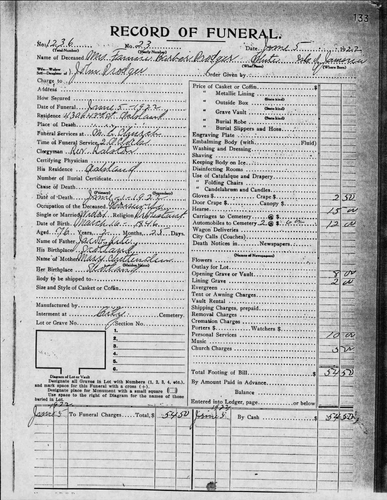 133
RECORD OF FUNERAL.
No. 1236 No. 23 Date June 5 1922
(Total Number) (Yearly Number)
Mrs White
(What Race) (Where Born)
John Prodger Order Given by
Charge to
Address
How Secured
Date of Funeral June 5 - 1922
Residence
Funeral Services at M. E. Church
Time of Funeral Service 2 O'Clock
Clergyman Rev. Ralston
Certifying Physician
His Residence
Number of Burial Certificate
Cause of Death
Date of Death 1922
Occupation of the Deceased
Single or Married Religion Protestant
Date of Birth March 10 - 1846
Aged 76 years, 2 Months, 23 Days
Name of Father
His Birthplace Scotland
Name of Mother Mary
Her Birthplace Scotland
Body to be shipped to
Size and Style of Casket or Coffin
Manufactured by
Interment at City Cemetery.
Lot or Grave No. Section No.
1.
2.
3.
4.
5.
6.
7.
8.
Diagram of Lot or Vault
Designate all Graves in Lot with Numbers (1, 2, 3, 4, etc.), and mark space for this Funeral with a cross (+).
Designate place for Monument with a small square
Use space to the right of Diagram for the names of those buried in Lot.
Price of Casket or Coffin
" Metallic Lining
" Outside Box
" Grave Vault
" Burial Robe
" Burial Slippers and Hose
Engraving Plate
Embalming Body (with Fluid)
Washing and Dressing
Shaving
Keeping Body on Ice
Disinfecting Rooms
Use of Catafalque and Drapery
" Folding Chairs
" Candelabrum and Candles
Gloves $ Crape $ 2 50
Door Crape $ Canopy $
Hearse 15 00
Carriages to Cemetery @ $
Automobiles to Cemetery 2 @ $ 6 00 12 00
Wagon Deliveries
City Calls (Coaches)
Death Notices in Newspapers
(Names of Newspapers)
Flowers
Outlay for Lot
Opening Grave or Vault 8 00
Lining Grave 2 00
Evergreen
Tent or Awning Charges
Vault Rental
Shipping Charges, prepaid
Removal Charges
Cremation Charges
Porters $ Watchers $
Personal Services 10 00
Music
Church Charges 5 00
Total Footing of Bill $ 54 50
By Amount Paid in Advance
Balance
Entered into Ledger, page or below
1922 1922
June 5 To Funeral Charges Total, $ 54 50 June 5 By Cash $ 54 50